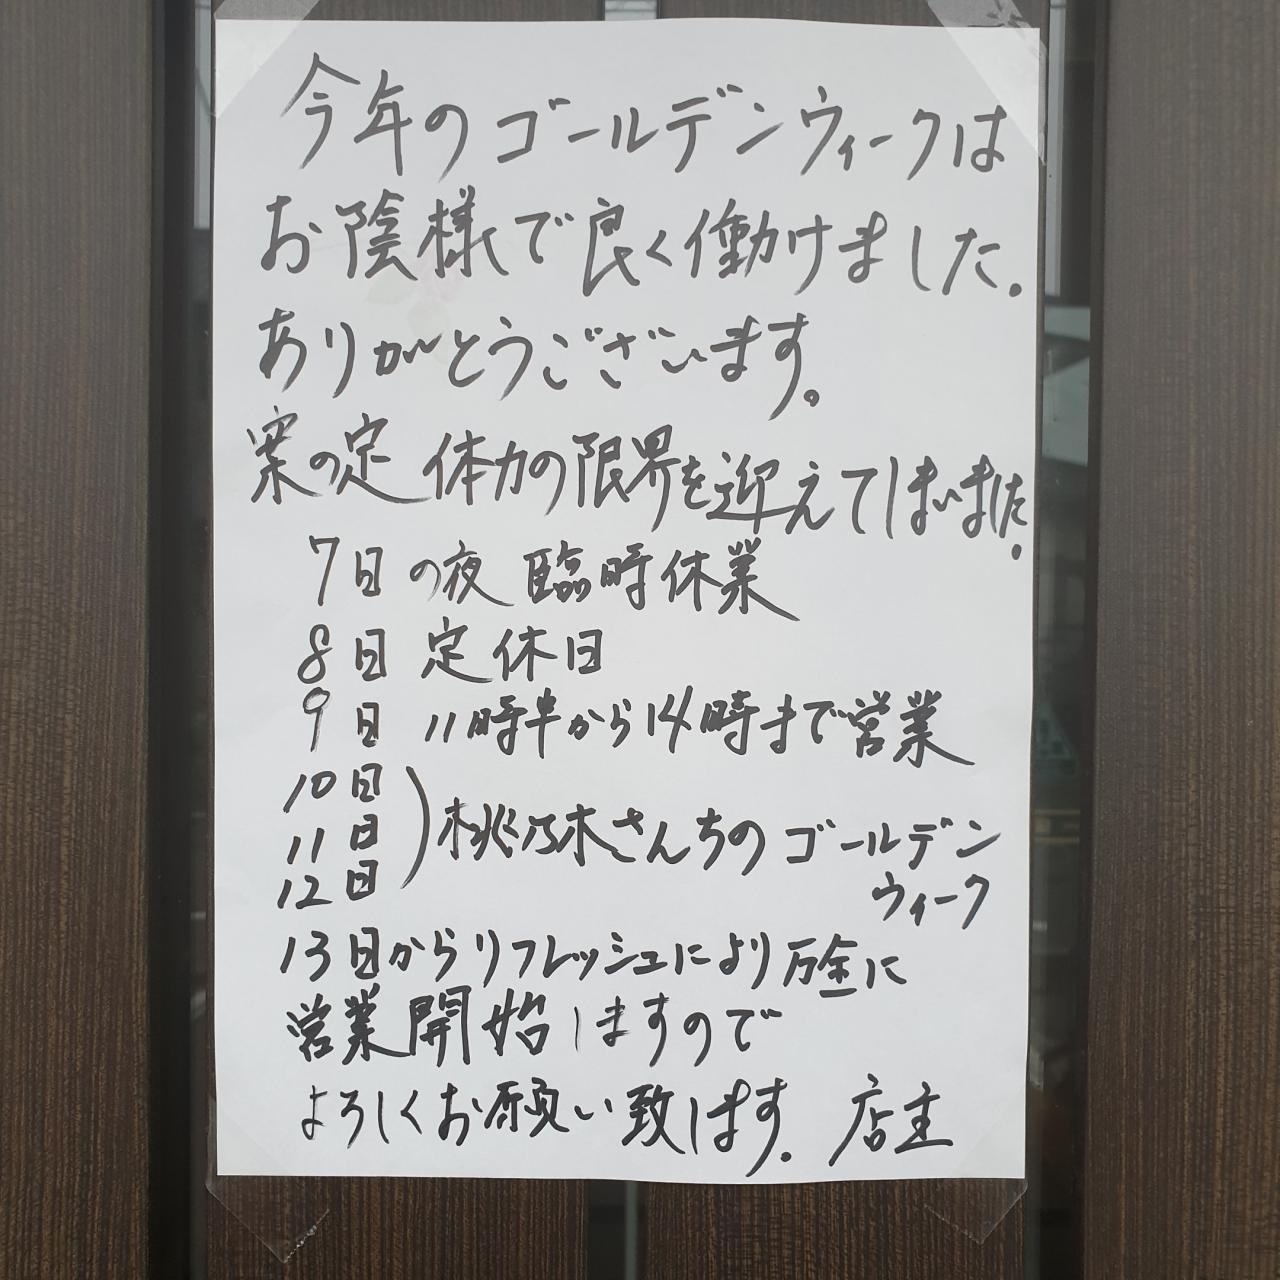 今年のゴールデンウィークは
お陰様で良く働けました.
ありがとうございます。
案の定 体力の限界を迎えてしまいました.
7日の夜 臨時休業
8日 定休日
9日 11時半から14時まで営業
10日
11日
12日
) 桃乃木さんちのゴールデン
ウィーク
13日からリフレッシュにより万全に
営業開始しますので
よろしくお願い致します. 店主